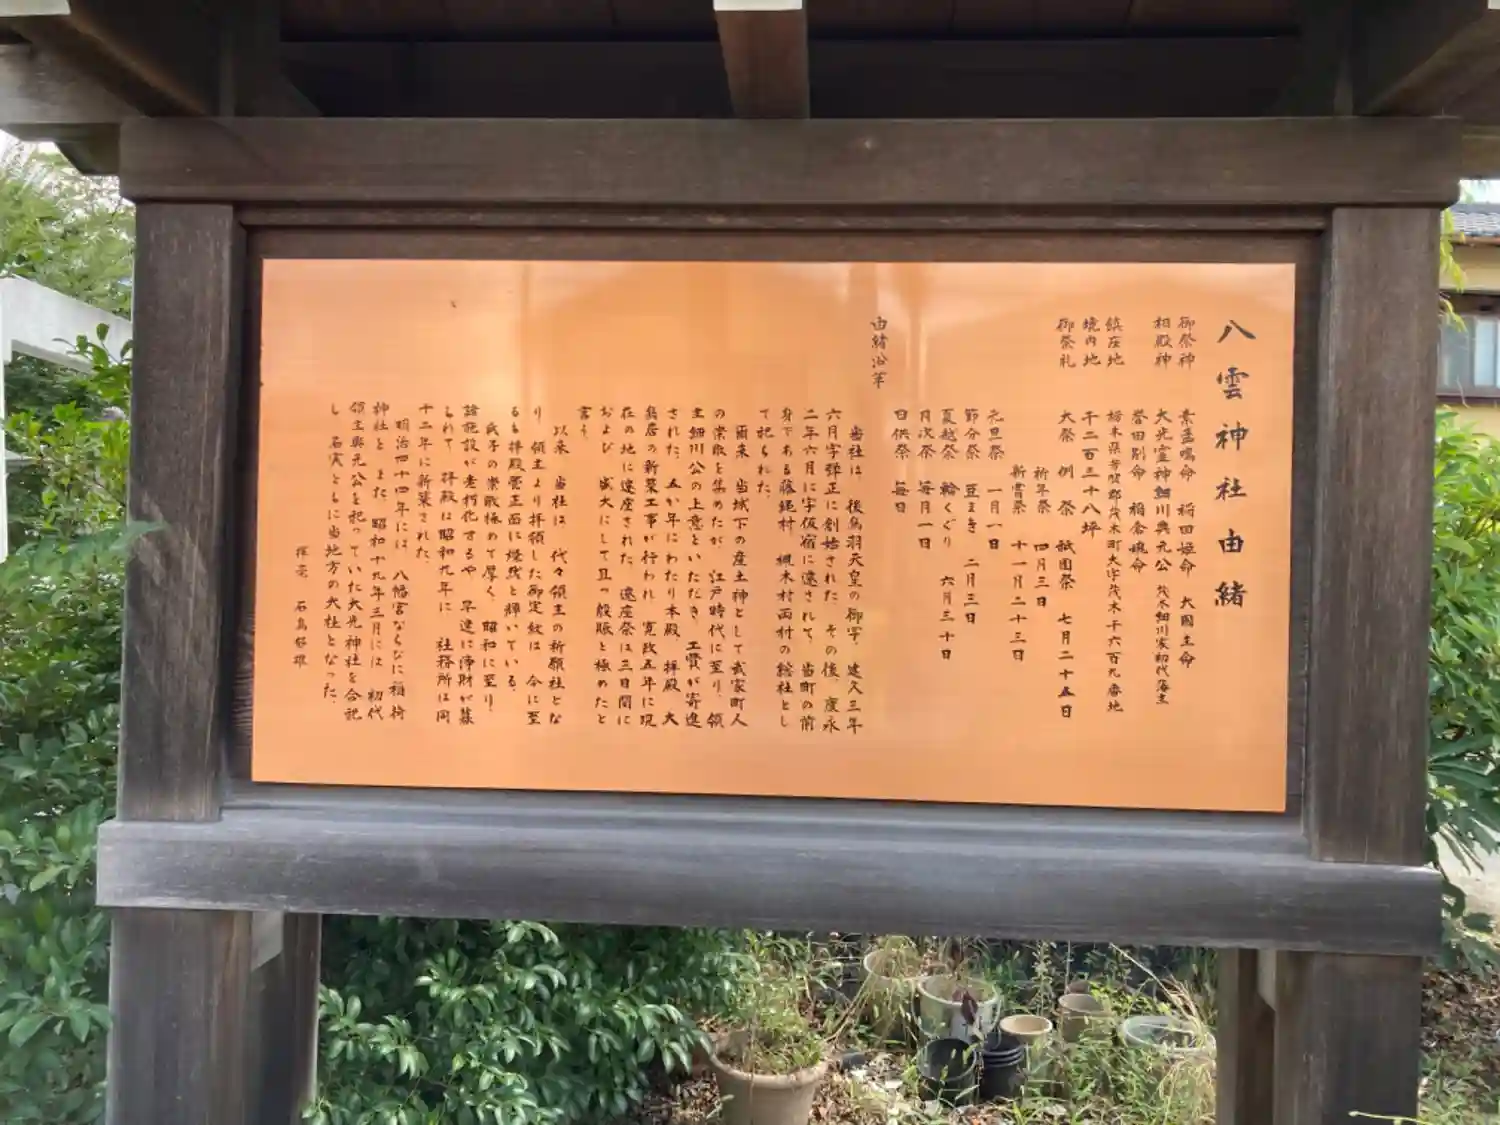 八雲神社由緒
御祭神 素盞嗚命 稲田姫命 大国主命
相殿神 大光霊神細川興元公 茂木細川家初代藩主
誉田別命 稲倉魂命
鎮座地 栃木県芳賀郡茂木町大字茂木千六百九番地
境内地 千二百三十八坪
御祭礼 大祭 例祭 祇園祭 七月二十五日
祈年祭 四月三日
新嘗祭 十一月二十三日
元旦祭 一月一日
節分祭 豆まき 二月三日
夏越祭 輪くぐり 六月三十日
月次祭 毎月一日
日供祭 毎日
由緒沿革
当社は、後鳥羽天皇の御宇、建久三年
六月字弾正に創始された。その後、応永
二年六月に字仮宿に遷されて、当町の前
身である藤縄村、槻木村両村の総社とし
て祀られた。
爾来、当城下の産土神として武家町人
の崇敬を集めたが、江戸時代に至り、領
主細川公の上意といただき、工費が寄進
された。五か年にわたり本殿、拝殿、大
鳥居の新築工事が行われ、寛政五年に現
在の地に遷座された。遷座祭は三日間に
および、盛大にして且つ殷賑と極めたと
言う。
以来、当社は、代々領主の祈願社とな
り、領主より拝領した御定紋は、今に至
るも拝殿甍正面に燦然と輝いている。
氏子の崇敬極めて厚く、昭和に至り、
諸施設が老朽化するや、早速に浄財が募
られて、拝殿は昭和九年に、社務所は同
十二年に新築された。
明治四十四年には、八幡宮ならびに稲荷
神社と、また、昭和十九年三月には、初代
領主興元公を祀っていた大光神社を合祀
し、名実ともに当地方の大社となった。
揮毫 石島